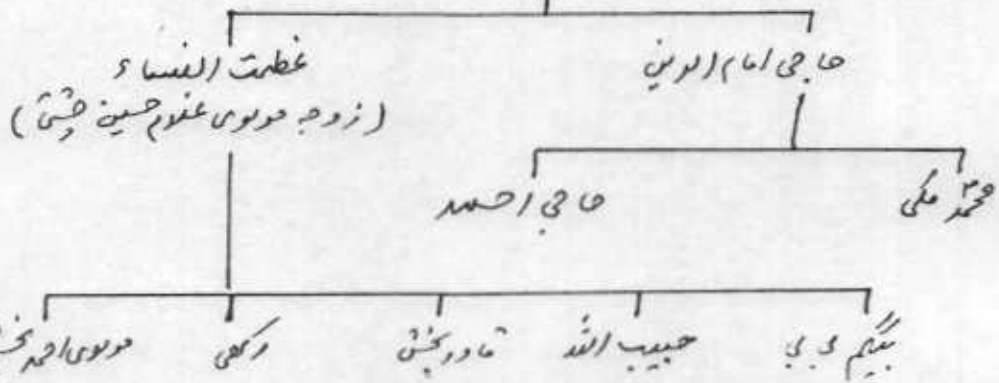 حاجی امام الدین
عظمت النساء
(زوجہ مولوی غلام حسین چشتی)
محمد مکی
حاجی احمد
بیگم بی بی
حبیب اللہ
قادر بخش
رکھی
مولوی احمد بخش